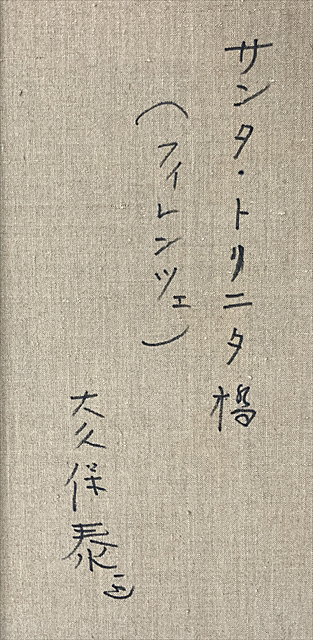 サンタ・トリニタ橋
（フィレンツェ）
大久保泰